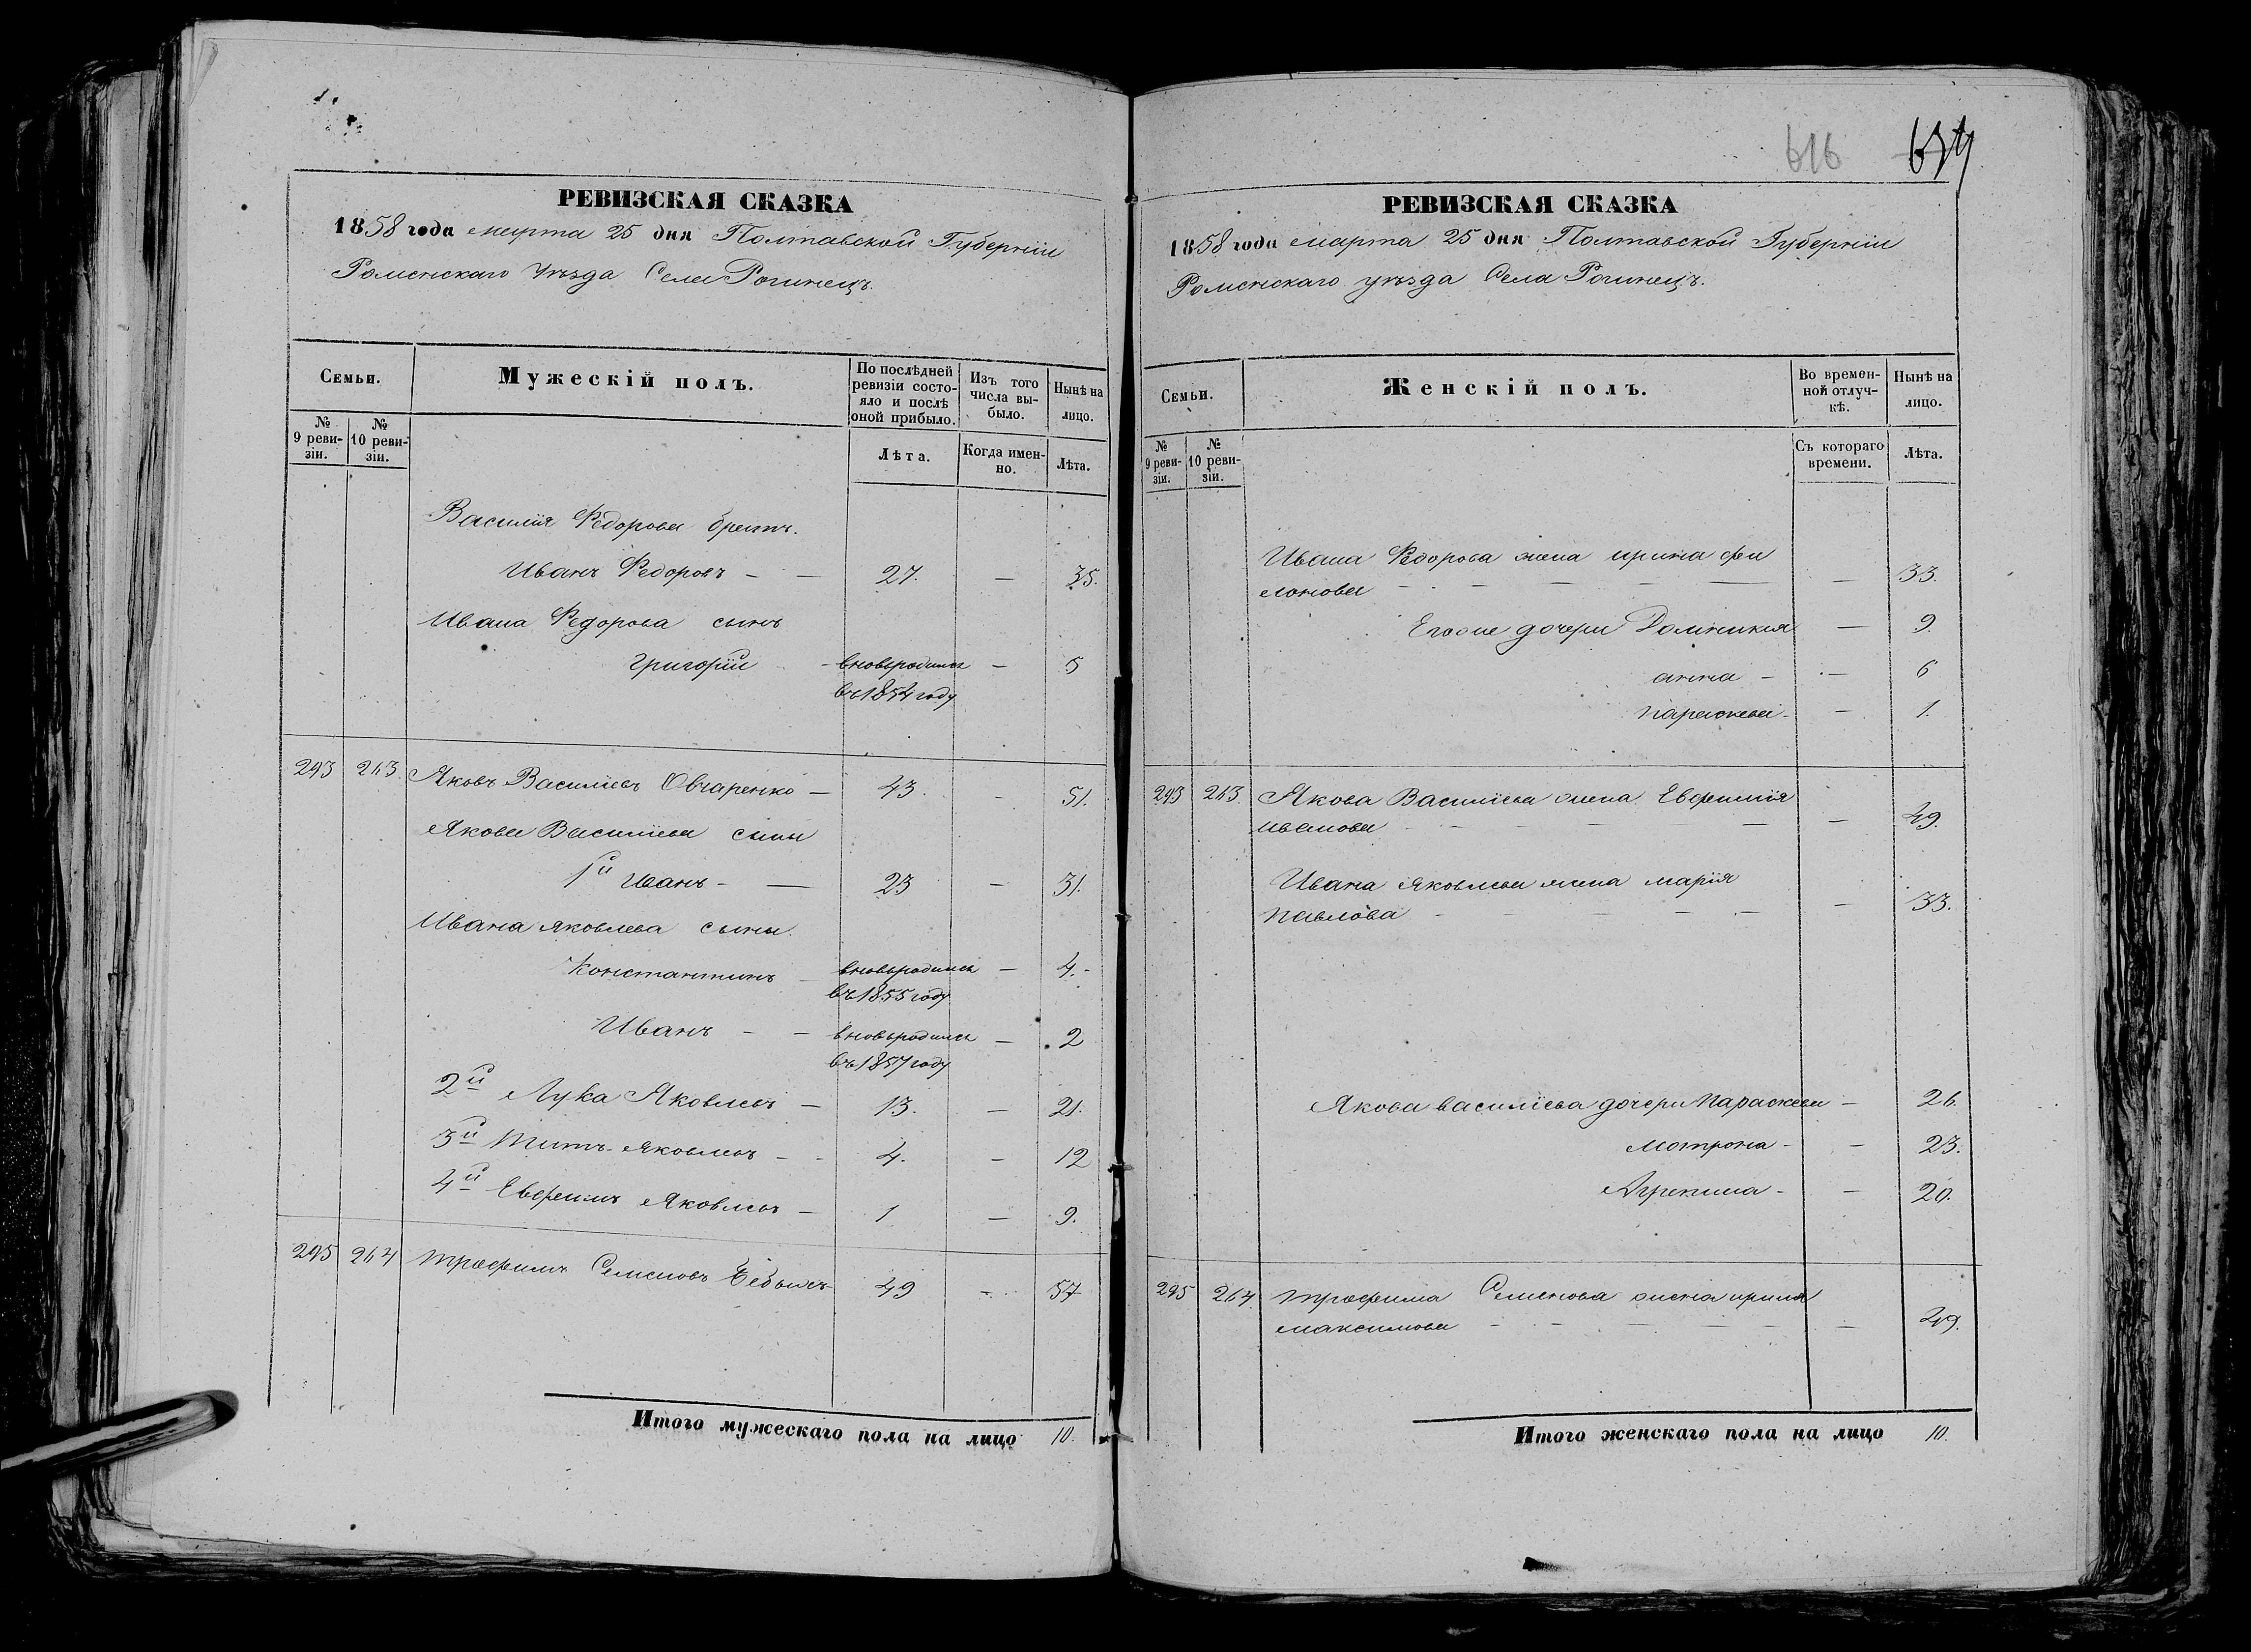 РЕВИЗСКАЯ СКАЗКА
1858 года марта 25 дня Полтавской Губерніи
Роменскаго Уѣзда Села Рогинецъ.
Семьи.
Мужескій полъ.
По послѣдней ревизіи состояло и послѣ оной прибыло.
Изъ того числа выбыло.
Нынѣ на лицо.
№ 9 ревизіи.
№ 10 ревизіи.
Лѣта.
Когда именно.
Лѣта.
Василія Федорова братъ.
Иванъ Федоровъ - - 27. - 35.
Ивана Федорова сынъ
Григорій - вновьродился - 5
въ 1854 году
293 263. Яковъ Василіевъ Овчаренко - 43. - 51.
Якова Василіева сыны
1й Иванъ - - 23 - 31.
Ивана Яковлева сыны.
Константинъ - вновьродился - 4.-
въ 1855 году
Иванъ - - вновьродился - 2
въ 1857 году
2й Лука Яковлевъ - 13. - 21.
3й Титъ Яковлевъ - - 4. - 12
4й Евфимъ Яковлевъ - 1 - 9.
295 264 Трофимъ Семеновъ 49 - 57
Итого мужескаго пола на лицо 10.
616 634
РЕВИЗСКАЯ СКАЗКА
1858 года марта 25 дня Полтавской Губерніи
Роменскаго уѣзда Села Рогинецъ.
Семьи.
Женскій полъ.
Во временной отлучкѣ.
Нынѣ на лицо.
№ 9 ревизіи.
№ 10 ревизіи.
Съ котораго времени.
Лѣта.
Ивана Федорова жена ирина фи
лонова - - - - - 33.
Егоже дочери Домникия - 9.
анна - - 6
параскева - - 1.
293 263. Якова Василіева жена Евфимія
Иванова - - - - - 49.
Ивана Яковлева жена марія
Павлова - - - - - 33.
Якова василіева дочери Параскева - 26.
Мотрона - - 23.
Агрепина - - 20.
295 264 Трофима Семенова жена ирина
максимова - - - - - 49.
Итого женскаго пола на лицо 10.